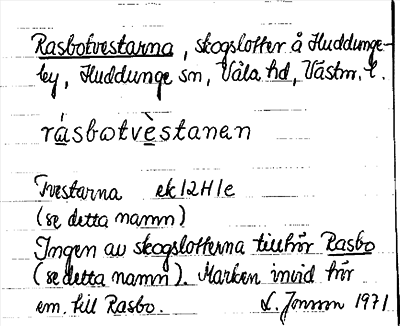 Rasbotvestarna, skogslotter å Huddunge-
by, Huddunge sn, Våla hd, Västm. l.
ràsbotvèstanan
Tvestarna ek 12H1e
(se detta namn)
Ingen av skogslotterna tillhör Rasbo
(se detta namn). Marken invid hör
em. till Rasbo. L. Jonson 1971